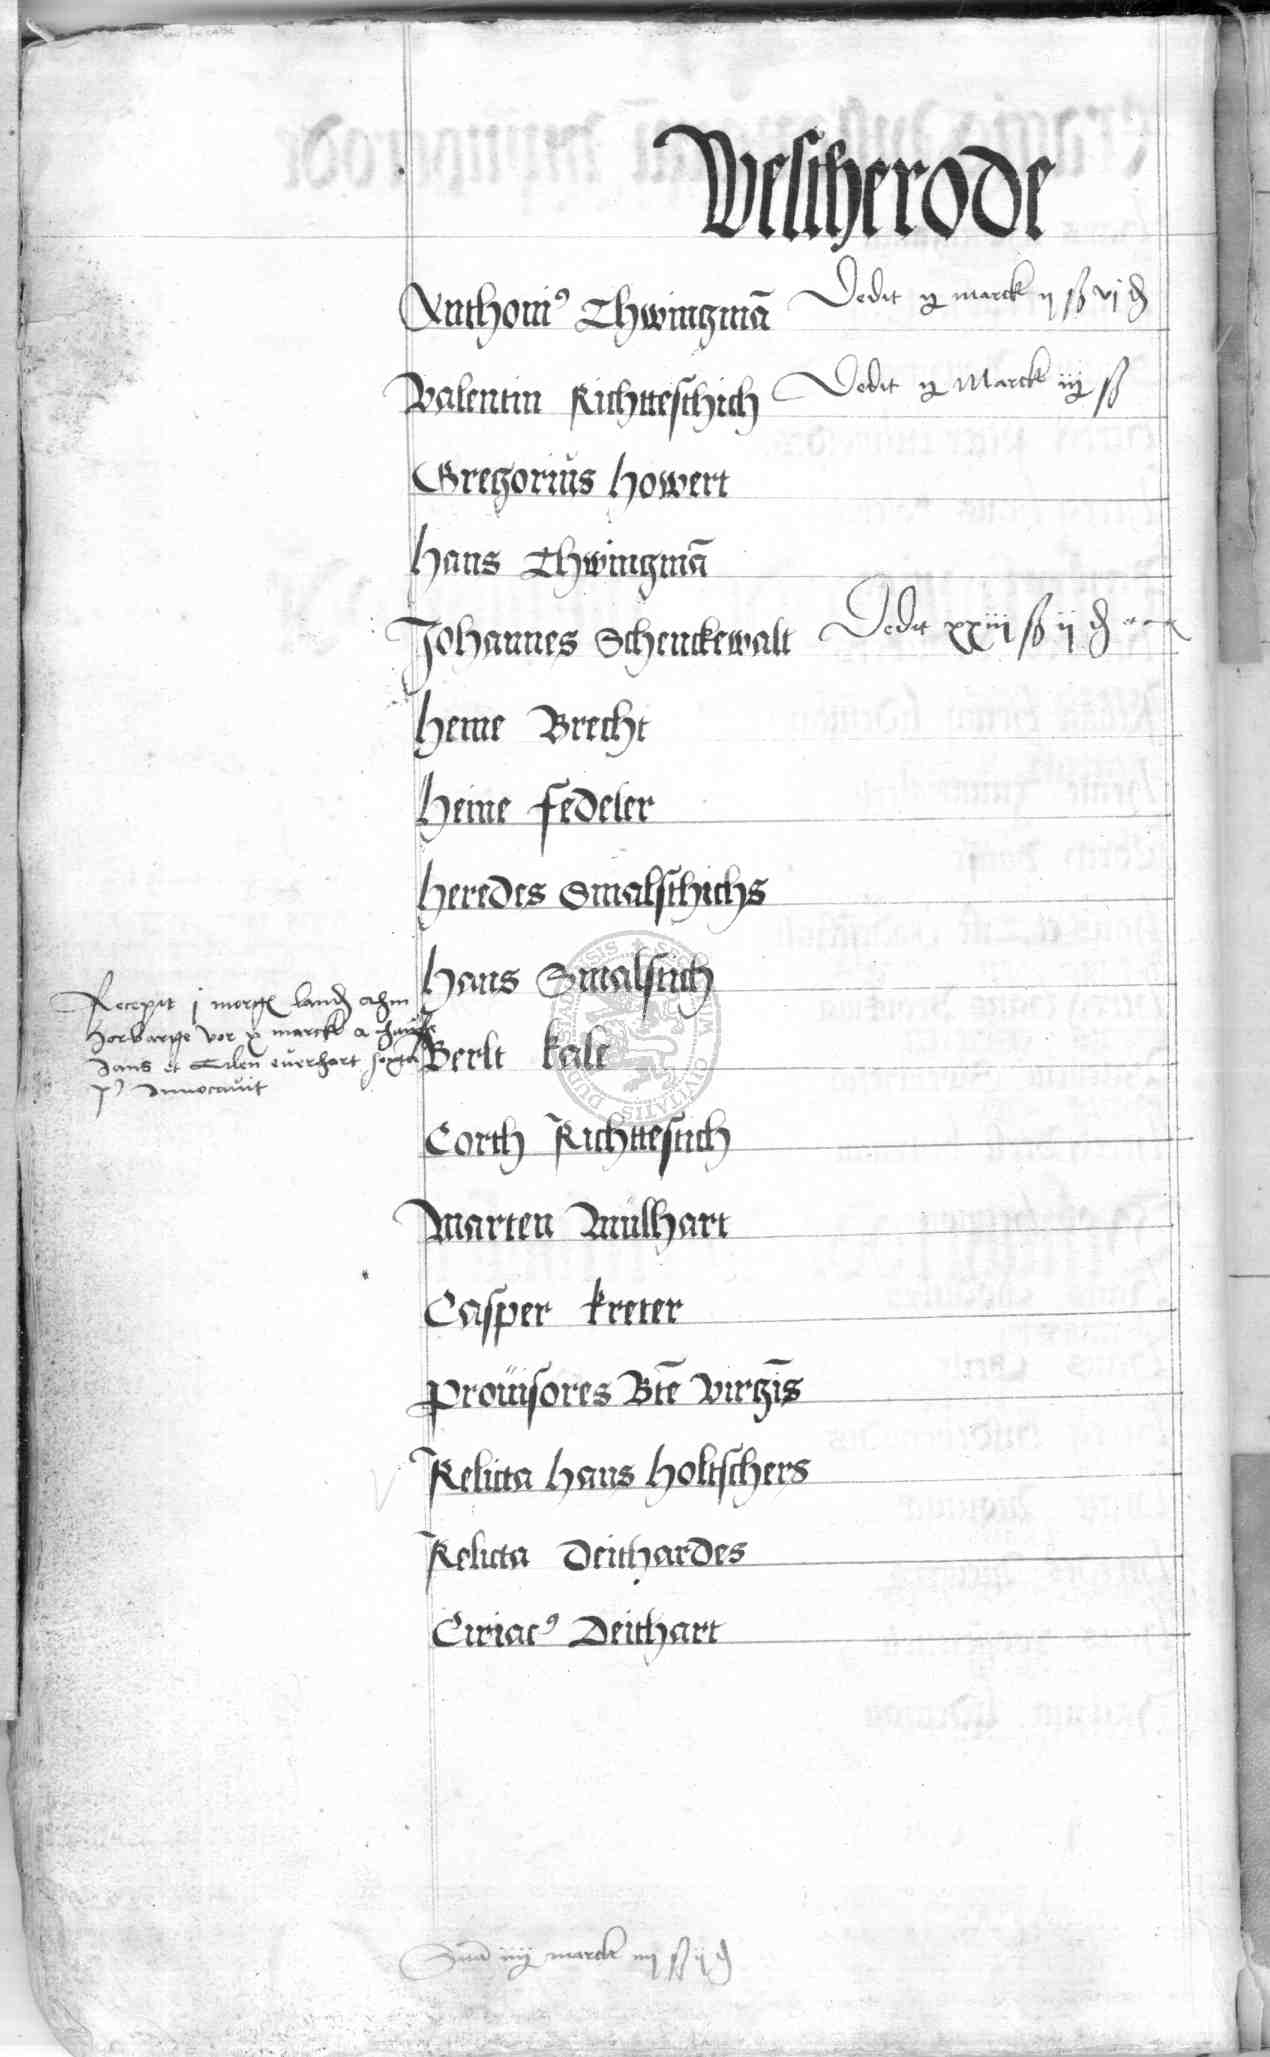 Westherode
Anthoni⁹ Thwingmā Dedit ij marck ij ß vj ₰
Valentin Richtteschich Dedit ij Marck iiij ß
Gregorius Howert
Hans Thwingmā
Johannes Schenckewalt Dedit xxiij ß ij ₰
Heine Brecht
Heine Fedeler
Heredes Smalschichs
Hans Smalstich
Recepit j morgē land am
Herbarge vor x marck a
Hans et Tilen everhart sexta
p⁹ Invocavit
Berlt Kale
Corth Richttestich
Marten Mülhart
Casper Kreter
Provisores Btē Virgīs
Relicta Hans Holtschers
Relicta Deithardes
Ciriac⁹ Deithart
Sūa iiiij marck iiij ß ij ₰